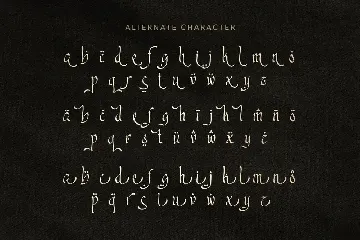 ALTERNATE CHARACTER
a b c d e f g h i j k l m n o
p q r s t u v w x y z
a b c d e f g h i j k l m n o
p q r s t u v w x y z
a b c d e f g h i j k l m n o
p q r s t u v w x y z